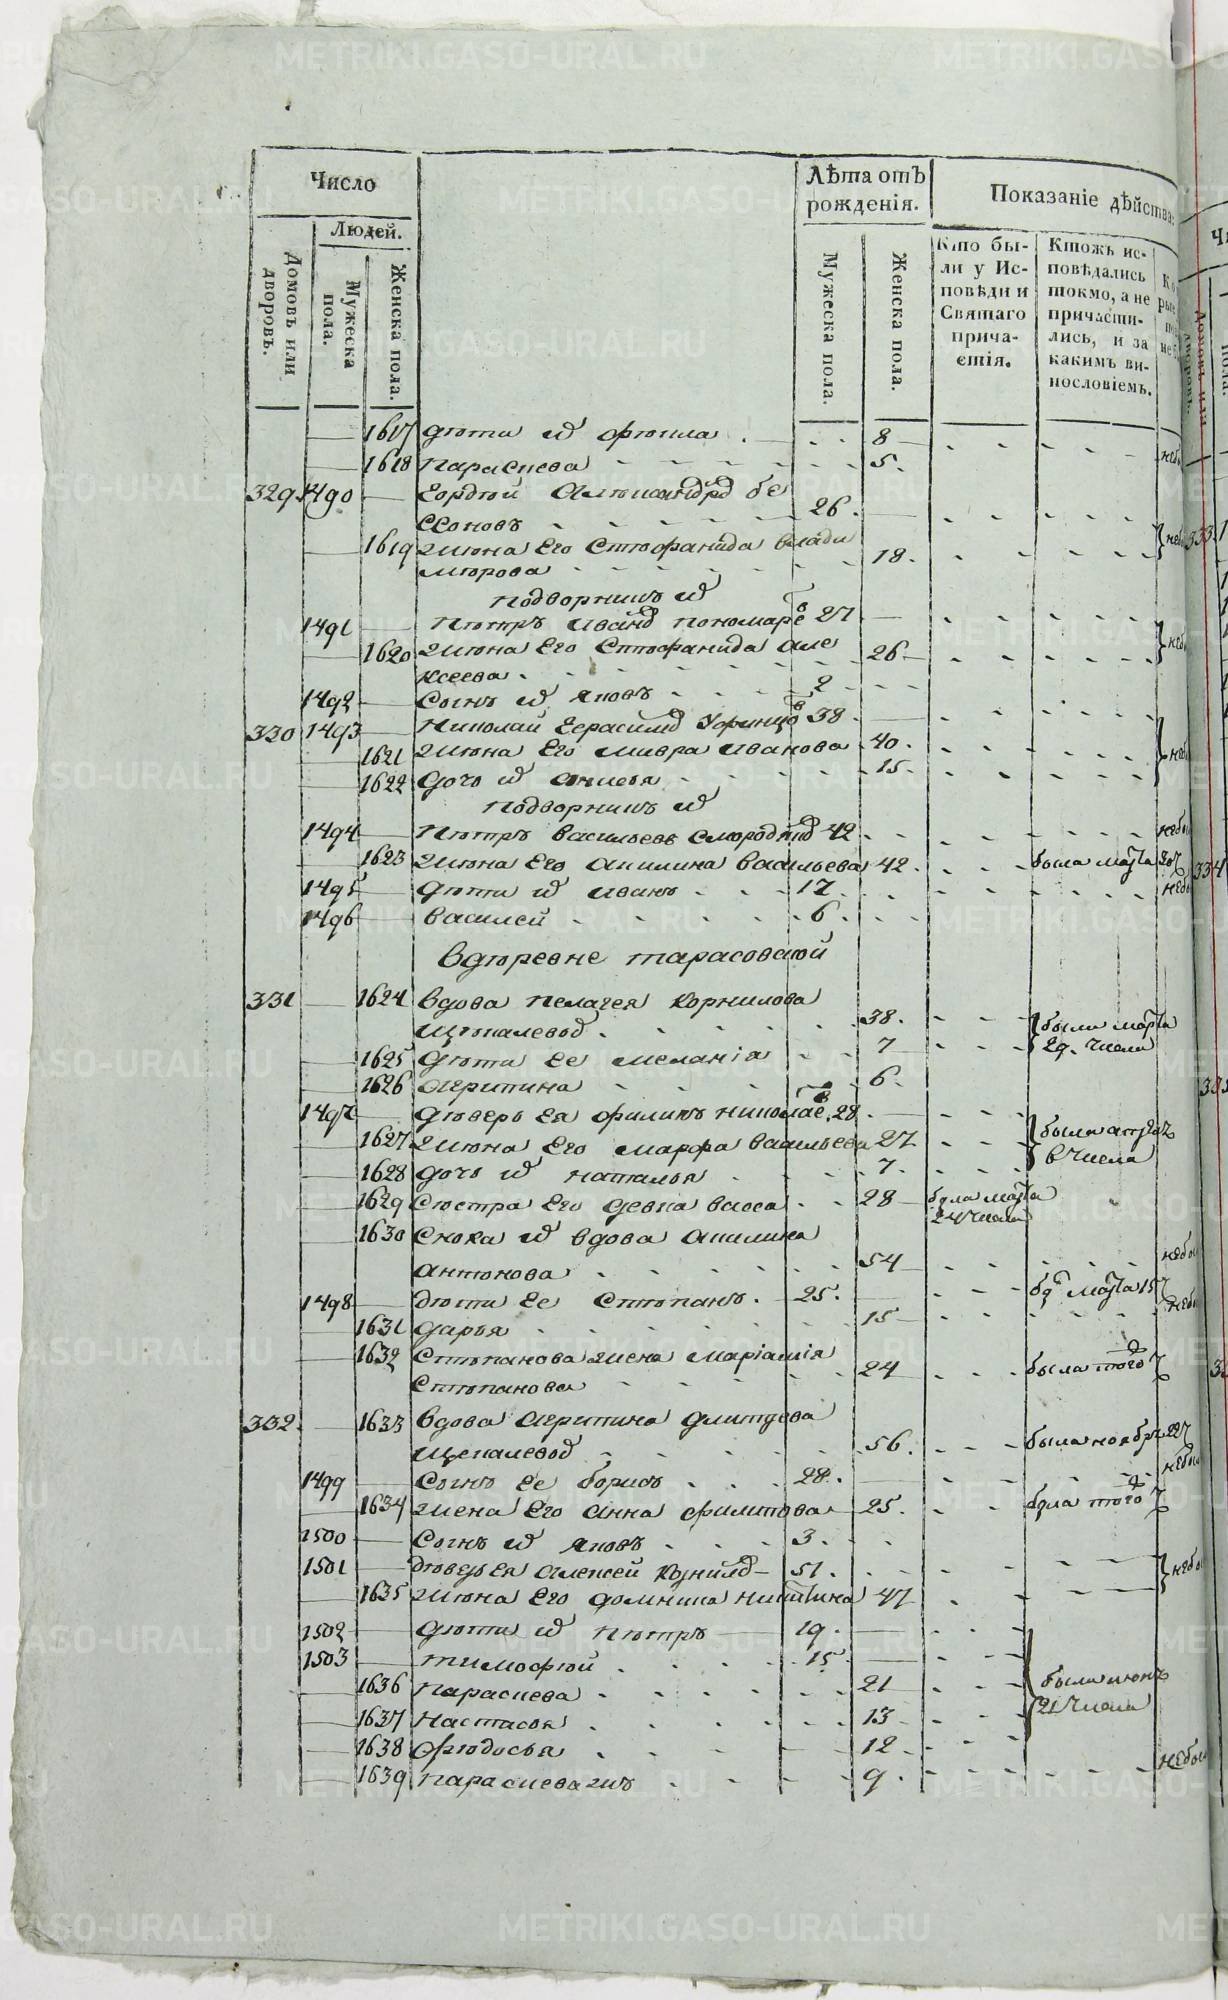 Число
Лѣта отъ рожденія.
Показаніе дѣйства
Людей.
Домовъ или дворовъ.
Мужеска пола.
Женска пола.
Мужеска пола.
Женска пола.
Кто бы-
ли у Ис-
повѣди и
Святаго
прича-
стія.
Ктожъ ис-
повѣдались
токмо, а не
причасти-
лись, и за
какимъ ви-
нословіемъ.
1617 дѣти их фекла 8
1618 параскева 5
329 1490
26
1619 жена его стефанида влади
мерова 18
подворник их
1491 петръ иван пономаре в 27
1620 жена его стефанида але
ксеева 26
1492 сынъ их яковъ 2
330 1493 николай герасим 38
1621 жена его мавра иванова 40
1622 дочь их анисья 15
подворник их
1494 петръ васильевъ смородн 42
1623 жена его акилина васильева 42 была мар
1495 дѣти их иванъ 17
1496 василей 6
в деревне тарасовской
331 1624 вдова пелагея корнилова
щепалевой 38 были мар
1625 дѣти ее меланіа 7 29 числа
1626 агрипина 6
1497 деверь ея филипъ николае в 28
1627 жена его марфа васильева 27
1628 дочь их наталья 7 6 числа
1629 сестра его девка васса 28 была мар 24 числа
1630 сноха их вдова акилина
антонова 54
1498 дѣти ее степанъ 25 мар 15
1631 дарья 15
1632 степанова жена маріамія
степанова 24 была того
332 1633 вдова агрипина дмитрева
щепалевой 56 была ноябр 22
1499 сынъ ее борисъ 28
1634 жена его анна филипова 25 была того
1500 сынъ их яковъ 3
1501 деверь ея алексей корнил 51
1635 жена его домника никитина 47
1502 дѣти их петръ 19
1503 тимофей 15
1636 параскева 21
1637 настасья 13 21 числа
1638 федосья 12
1639 параскева жъ 9
METRIKI.GASO-URAL.RU